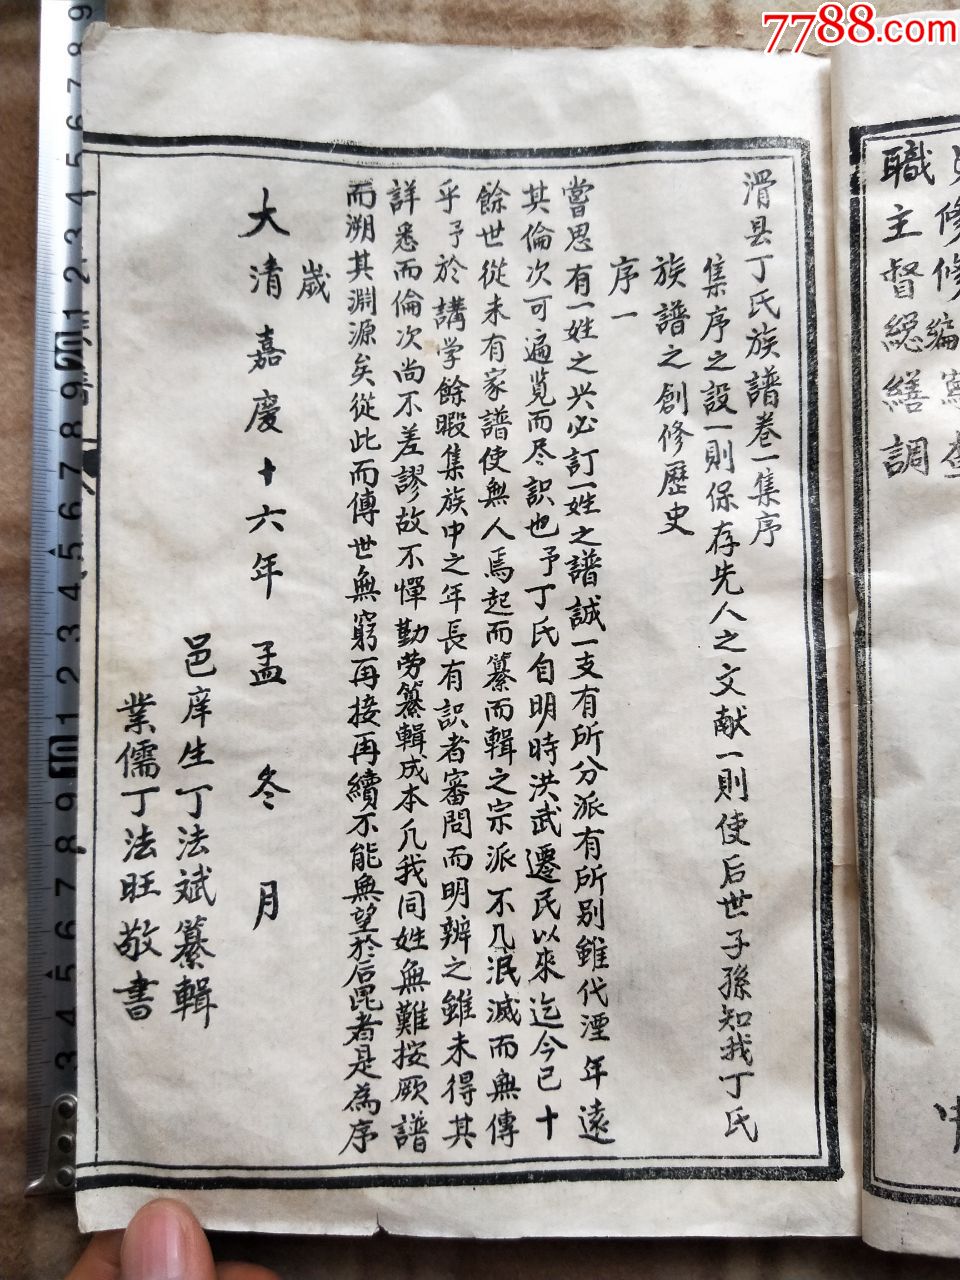 7788.com
滑县丁氏族譜卷一集序
集序之設一則保存先人之文献一則使后世子孫知我丁氏
族譜之創修歷史
序一
嘗思有一姓之兴必訂一姓之譜誠一支有所分派有所别雖代湮年遠
其倫次可遍览而尽識也予丁氏自明時洪武遷民以來迄今已十
餘世從未有家譜使無人焉起而纂而輯之宗派不几泯滅而無傳
乎予於講学餘暇集族中之年長有識者審問而明辨之雖未得其
詳悉而倫次尚不差謬故不憚勤劳纂輯成本凡我同姓無難按厥譜
而溯其淵源矣從此而傳世無窮再接再續不能無望於后昆者是為序
歲
大清嘉慶十六年孟冬月
邑庠生丁法斌纂輯
業儒丁法旺敬書
職主督総繕調